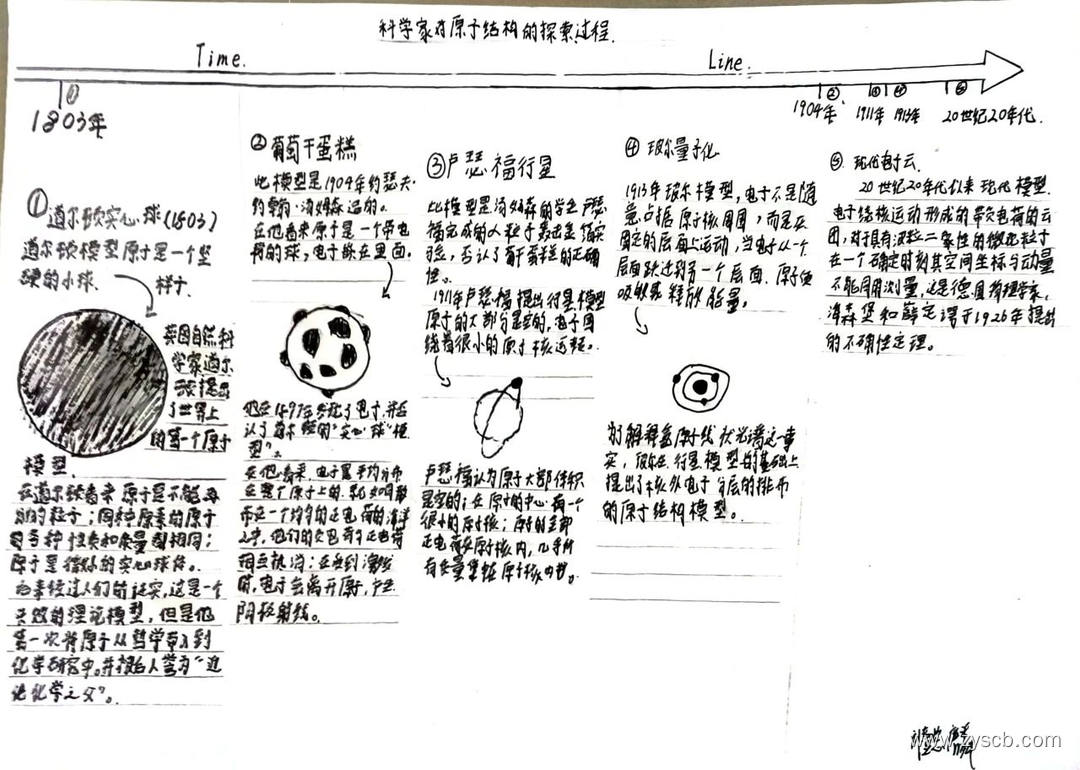 科学家对原子结构的探索过程.
Time.
Line.
①
1803年
② ③ ④ ⑤
1904年 1911年 1913年 20世纪20年代.
①道尔顿实心球(1803)
道尔顿模型原子是一个坚
硬的小球.
样子.
英国自然科
学家道尔
顿提出
了世界上
的第一个原子
模型.
在道尔顿看来原子是不能再
分的粒子;同种原素的原子
的各种性质和质量都相同;
原子是微小的实心球体。
后来经过人们的证实,这是一个
失败的理论模型,但是他
第一次将原子从哲学带入到
化学研究中。并被后人誉为“近
代化学之父”。
②葡萄干蛋糕
此模型是1904年约瑟夫·
约翰·汤姆森造的。
在他看来原子是一个带电
荷的球,电子嵌在里面.
他在1897年发现了电子,并否
认了道尔顿的“实心球”模
型”。
在他看来,电子是平均分布
在整个原子上的.
布在一个均匀的正电荷的海洋
之中,他们的负电荷与正电荷
相互抵消:在受到激发
时,电子会离开原子,产生
阴极射线。
③卢瑟福行星
此模型是汤姆森的学生卢瑟
福完成的α粒子轰击金箔实
验,否认了葡萄干蛋糕的正确
性。
1911年卢瑟福提出行星模型
原子的大部分是空的,电子围
绕着很小的原子核运转。
卢瑟福认为原子大部体积
是空的;在原子的中心有一个
很小的原子核;原子的全部
正电荷在原子核内,几乎所
有质量集在原子核内部。
④玻尔量子化
1913年玻尔模型,电子不是随
意占据原子核周围,而是在
固定的层面上运动,当电子从一个
层面跃迁到另一个层面.原子便
吸收或释放能量。
为了解释氢原子线状光谱这一事
实,玻尔在行星模型的基础上
提出了核外电子分层的排布
的原子结构模型。
⑤.现代电子云.
20世纪20年代以来现代模型.
电子绕核运动形成的带负电荷的云
团,对于具有波粒二象性的微观粒子
在一个确定时刻其空间坐标与动量
不能同时测量,这是德国物理学家
海森堡和薛定谔于1926年提出
的不确性定理。
www.zyscb.com